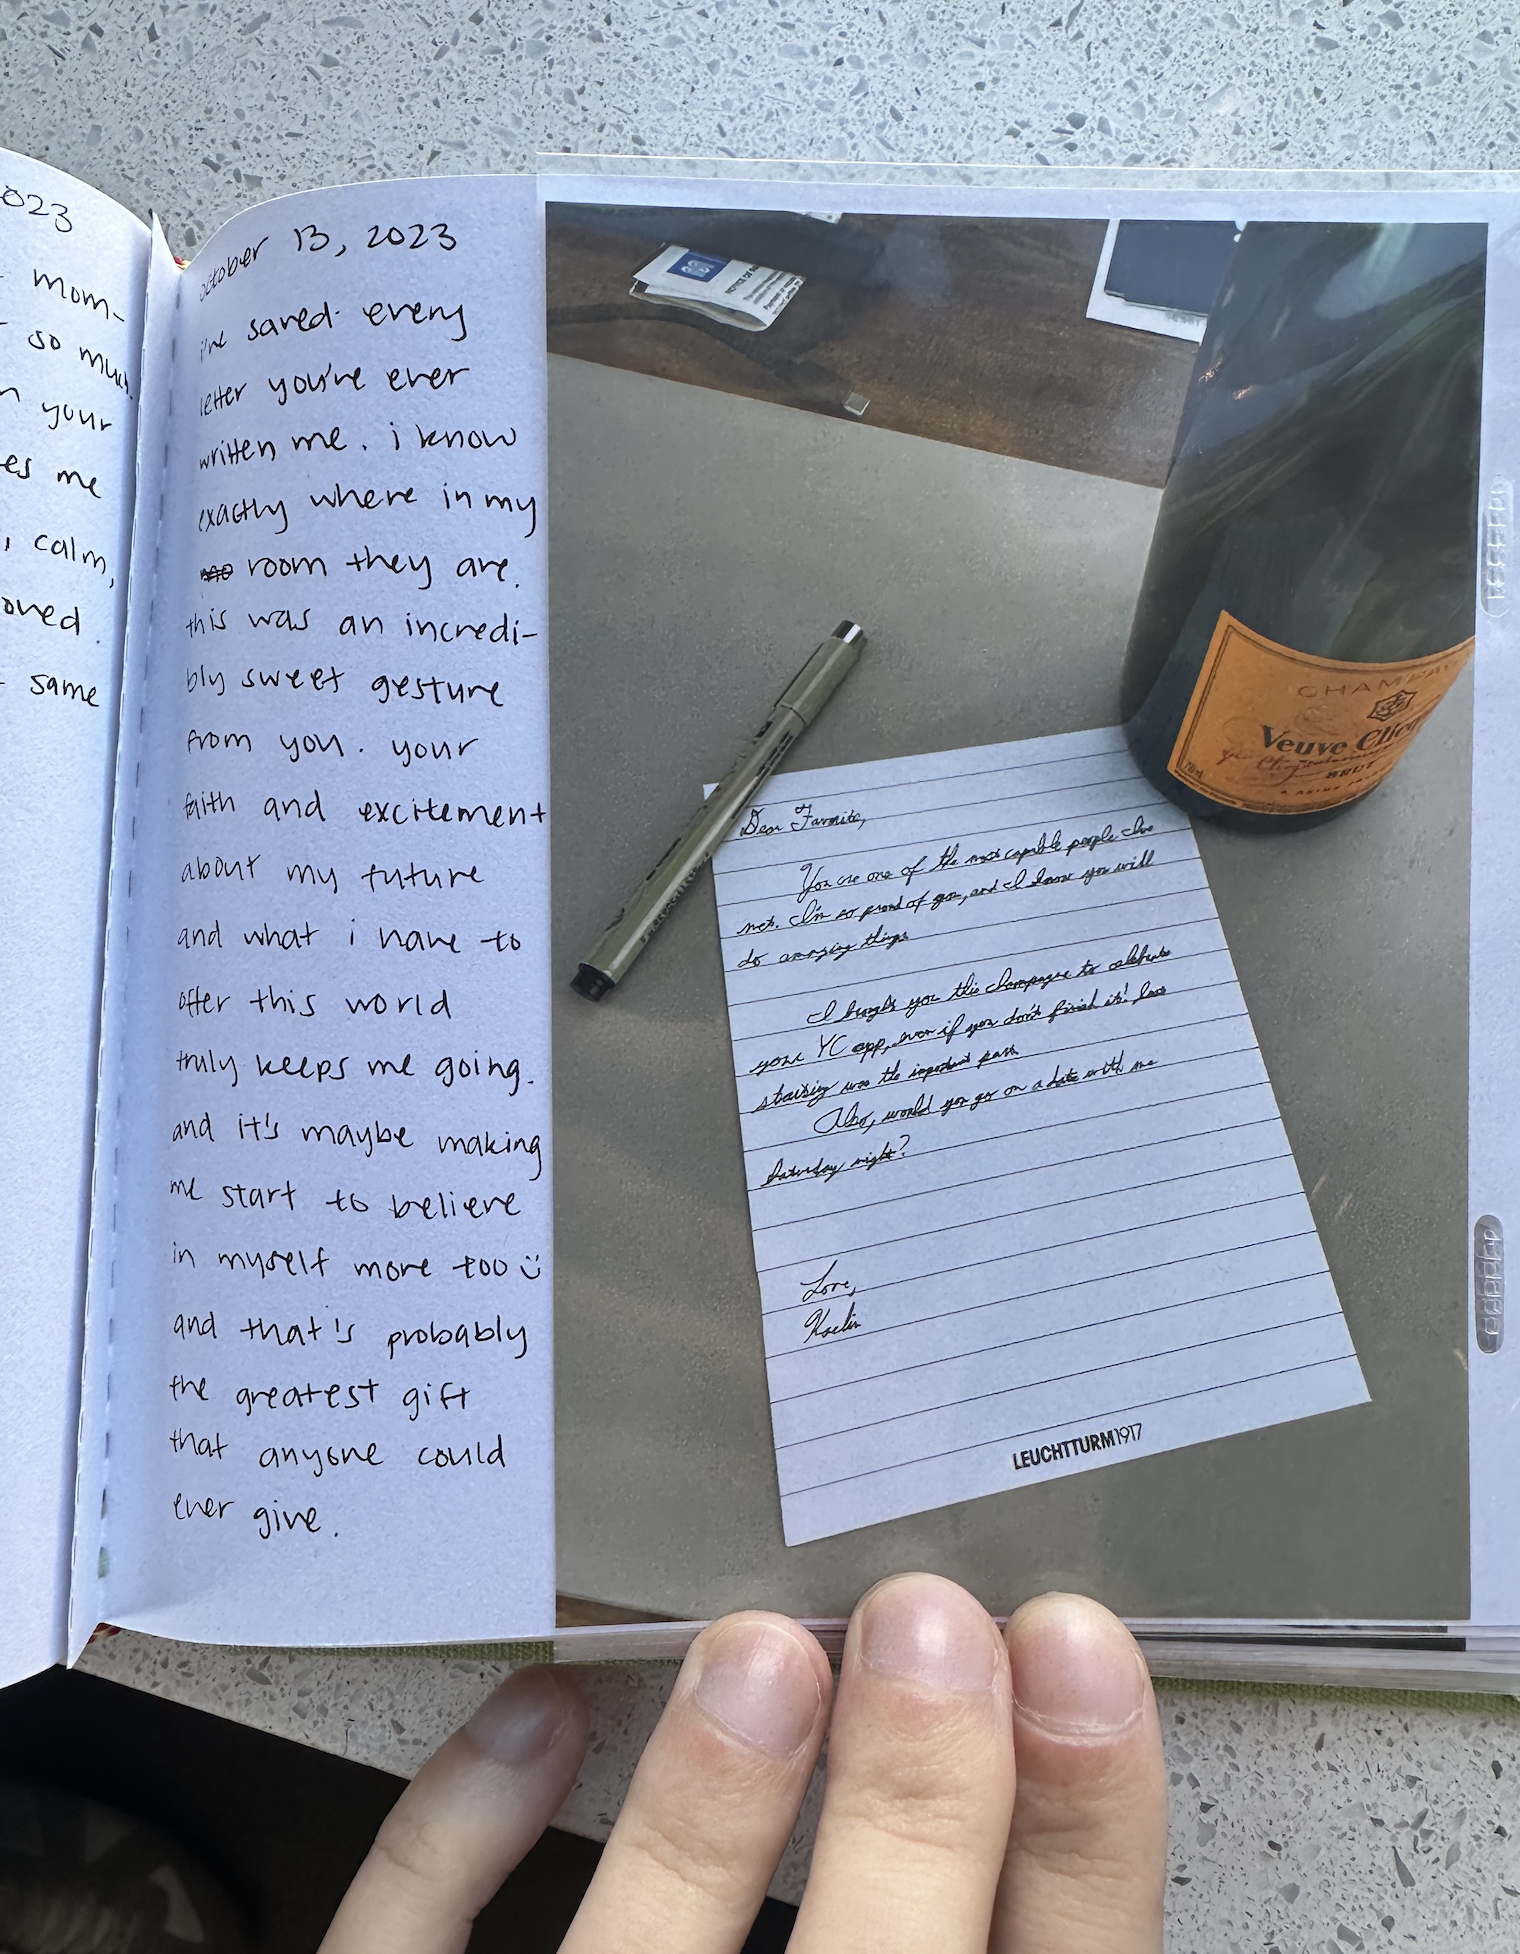 2023
mom-
so much.
your
es me
, calm,
oved.
same
october 13, 2023
i've saved every
letter you've ever
written me. i know
exactly where in my
room they are.
this was an incredi-
bly sweet gesture
from you. your
faith and excitement
about my future
and what i have to
offer this world
truly keeps me going.
and it's maybe making
me start to believe
in myself more too :)
and that's probably
the greatest gift
that anyone could
ever give.
CHAMPA
Veuve Clic
BRUT
Dear Favorite,
You are one of the most capable people I've
met. I'm so proud of you, and I know you will
do amazing things.
I bought you this champagne to celebrate
your YC app, even if you don't finish it!
starting was the important part.
Also, would you go on a date with me
Saturday night?
Love,
Kaelin
LEUCHTTURM1917